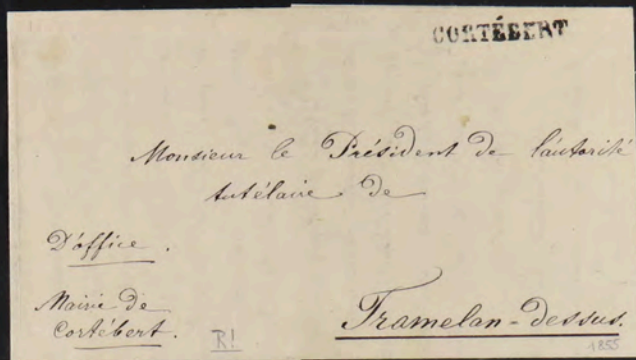 CORTÉBERT
Monsieur le Président de l'autorité
tutélaire de
D'office.
Mairie de
Cortébert.
R!
Tramelan-dessus.
1855